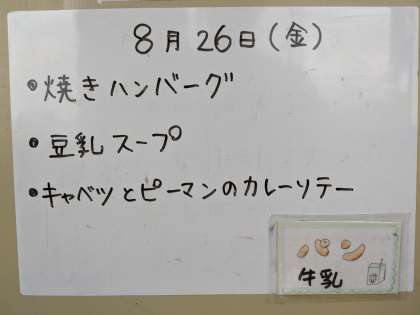 8月26日(金)
・焼きハンバーグ
・豆乳スープ
・キャベツとピーマンのカレーソテー
パン
牛乳